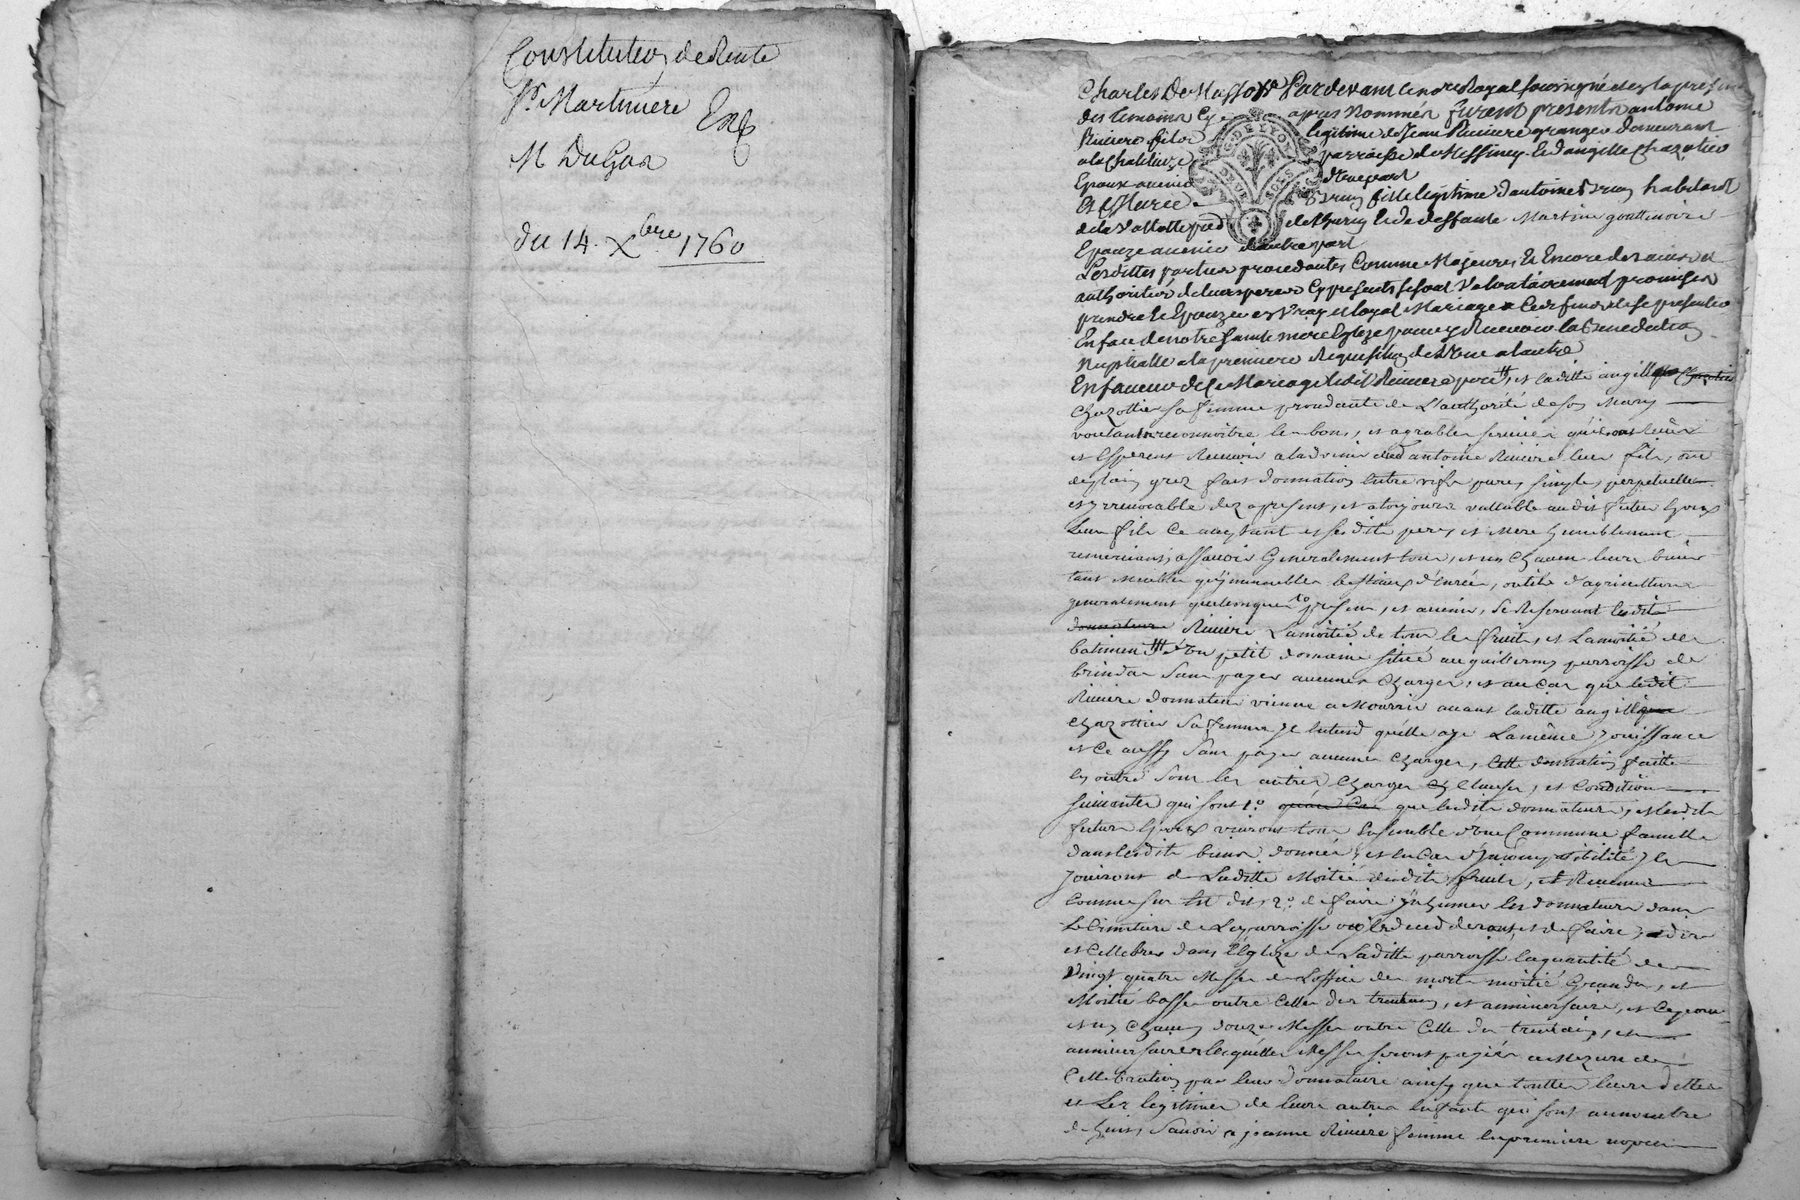 Constitution de Rente
Sr Martiniere
M DuGas
du 14. Xbre 1760
G. DE LYON
DEUX SOLS
Charles De Masso Pardevant le nore Royal soussigné et en la presence
des temoins Cy apres Nommés furent presents antoine
Riviere fils legitime de Jean Riviere granger demeurant
parroisse de Messimy et d'angille Chazottier
Epoux avenir d'une part
Et fille legitime d'antoine habitant
de et de deffunte Martine gouttenoire
Epouze avenir d'autre part
Lesdittes parties procedantes Comme Majeures Et Encore de
authorités de leurs peres Cy presents se sont Volontairement promises
prendre Et Epouzer en Vray et loyal Mariage a Ces fins de se presenter
En face de notre sainte mere Eglize pour y Recevoir la Benediction
Nuptialle a la premiere Requisition de L'une a l'autre
En faveur de Ce Mariage ledit Riviere pere, et laditte angille
Chazottier sa femme procedante de L'authorité de son Mary
voulant reconnoitre les bons, et agreables services qu'ils ont
et Esperent Recevoir a l'advenir dud antoine Riviere leur fils, ont
de plain grez fait donnation entre vifs pure, simple, perpetuelle
et yrrevocable dez apresent, et a toujours vallable audit futur Epoux
Leur fils Ce acceptant et sesdits pere, et Mere humblement
remerciant, assavoir Generalement tous, et un chacun leurs biens
tant Meubles qu'ymmeubles bestiaux d'Entrée, outils d'agriculture
generalement quelconques presents, et avenir, Se Reservant ledit
donnateur Riviere La moitié de tous les fruits, et La moitié des
batiments d'Un petit domaine situé au guillermy parroisse de
brindas Sans payer aucunes charges, et au Cas que ledit
Riviere donnateur vienne a Mourrir avant laditte angille
Chazottier Sa femme Il Entend qu'elle aye La même Jouissance
et Ce aussy Sans payer aucunes charges, Cette donnation faitte
En outre Sous les autres Charges Clauses, et Conditions
Suivantes qui sont 1o. que lesdits donnateurs, et lesdits
futurs Epoux vivront tous Ensemble d'Une Commune famille
dans lesdits biens donnés, et en Cas d'Incompatibilité Ils
Jouiront de Laditte Moitié desdits fruits, et Revenus
Comme sus Est dit, 2o. de faire Inhumer les donnateurs dans
Le Cimitiere de La parroisse ou ils decederont, et de faire dire
et Cellebrer dans l'Eglize de Laditte parroisse la quantité de
Vingt quatre Messes de L'office des morts moitié Grandes, et
Moitié basses outre Celles des trentain, et anniversaire, et Ce pour
et un chacun douze Messes outre Celle du trentain, et
anniversaire lesquelles Messes seront payées a Mezure de
Cellebration par leur donnataire ainsy que touttes leurs dettes
et Les legitimes de leurs autres Enfants qui sont au nombre
de huit, Savoir a jeanne Riviere femme En premiere nopces